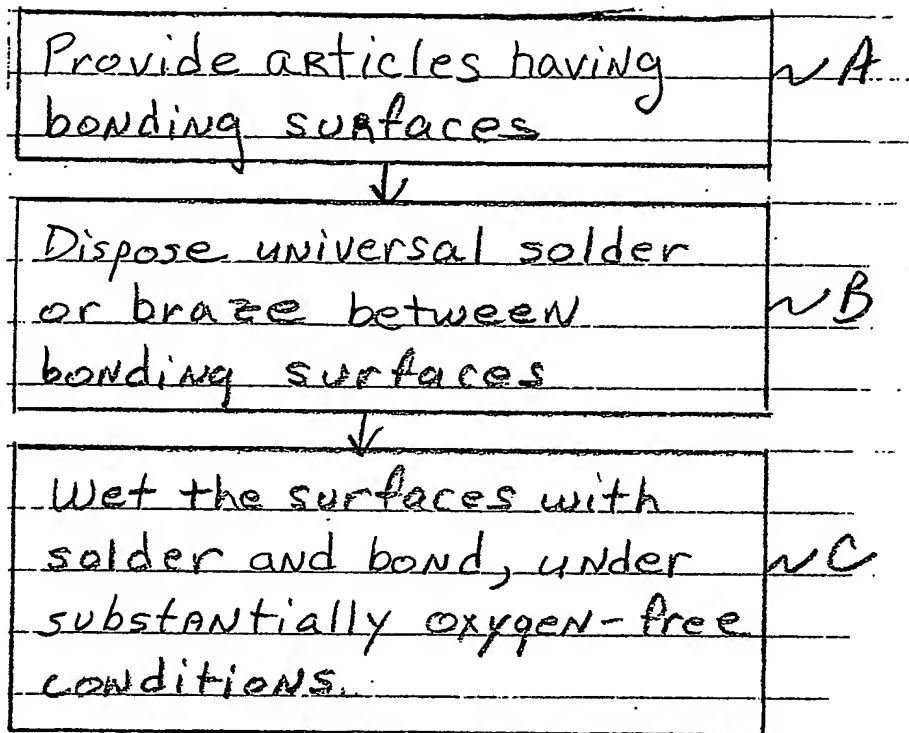 Provide articles having
bonding surfaces
~ A
Dispose universal solder
or braze between
bonding surfaces
~ B
Wet the surfaces with
solder and bond, under
substantially oxygen-free
conditions.
~ C